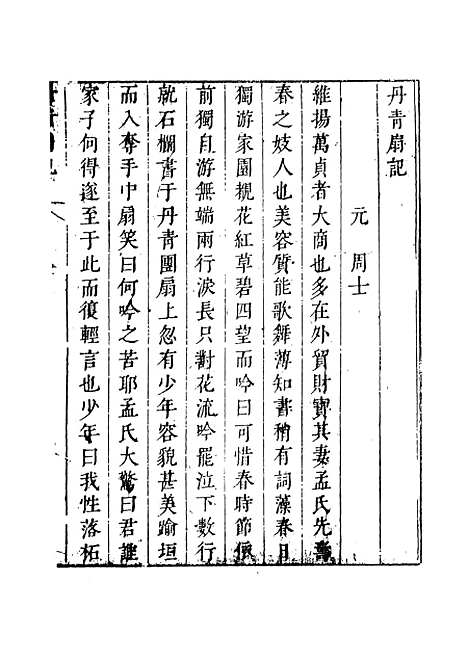 丹青扇記
元 周士
維揚萬貞者大商也多在外貿財寶其妻孟氏先壽
春之妓人也美容質能歌舞薄知書稍有詞藻春日
獨游家園覩花紅草碧四望而吟曰可惜春時節依
前獨自游無端兩行淚長只對花流吟罷泣下數行
就石欄書于丹青團扇上忽有少年容貌甚美踰垣
而入奪手中扇笑曰何吟之苦耶孟氏大驚曰君誰
家子何得遂至于此而復輕言也少年曰我性落柘